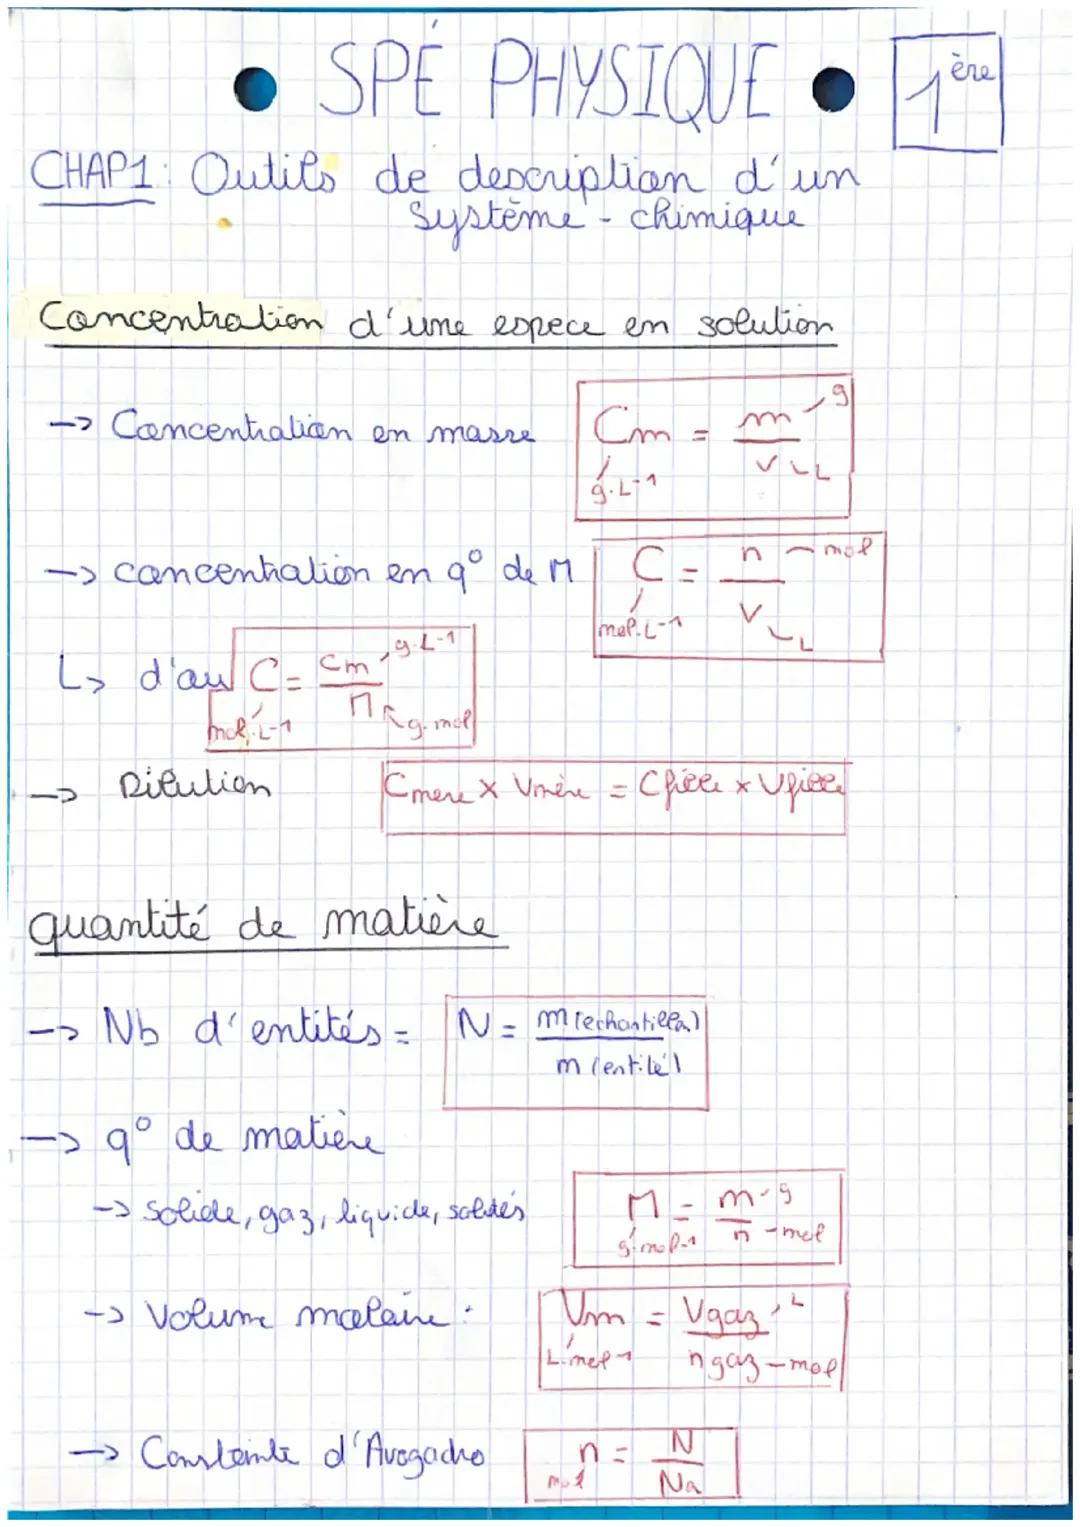 • SPÉ PHYSIQUE • 1ère
CHAP1: Outils de description d'un
système - chimique
Concentration d'une espece en solution
-> Concentration en masse Cm = m / V
g
g.L-1 L
-> concentration en q° de M C = n / V
mol
mol.L-1 L
L> d'où C = Cm / M
g.L-1
mol.L-1 g.mol
-> Dilution Cmere x Vmère = Cfille x Vfille
quantité de matière
-> Nb d'entités = N = m (echantillon) / m (entité)
-> q° de matière
-> solide, gaz, liquide, solutés M = m / n
g
g.mol-1 mol
-> Volume molaire : Vm = Vgaz / ngaz
L
L.mol-1 mol
-> Constante d'Avogadro n = N / Na
mol